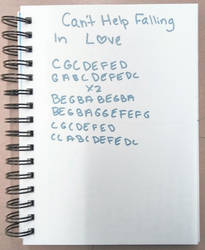 Can't Help Falling
In L♡ve
CGCDEFED
GABCDEFEDC
X2
BEGBABEGBA
BEGBAGGEFEFG
CGCDEFED
CCABCDEFEDC